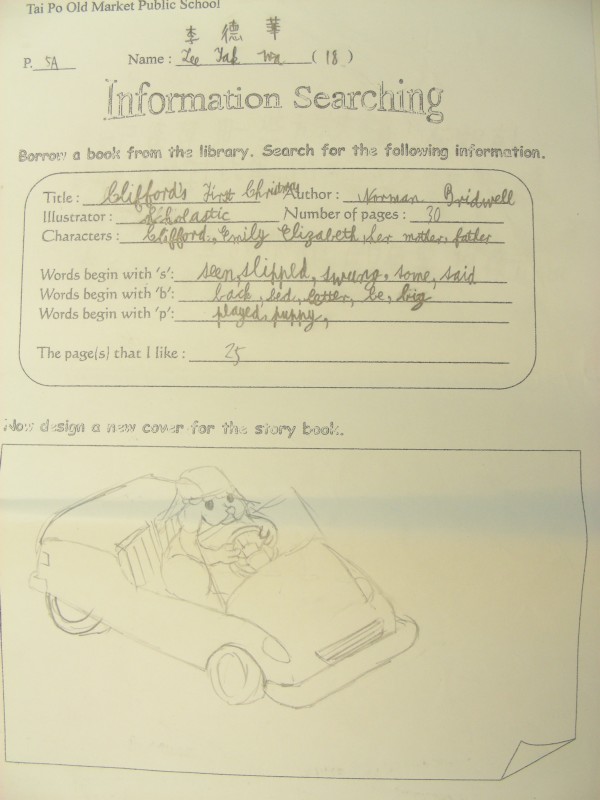 Tai Po Old Market Public School
李 德 華
P. 5A Name : Lee Tak Wa ( 18 )
Information Searching
Borrow a book from the library. Search for the following information.
Title : Clifford's First Christmas Author : Norman Bridwell
Illustrator : Scholastic Number of pages : 30
Characters : Clifford, Emily Elizabeth, her mother, father
Words begin with 's': seen, slipped, swung, some, said
Words begin with 'b': back, bed, be, big
Words begin with 'p': played, puppy,
The page(s) that I like : 25
Now design a new cover for the story book.